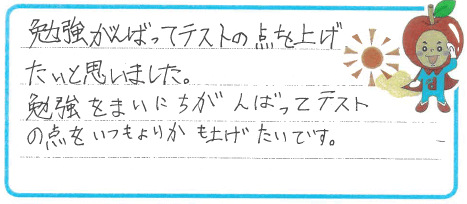 勉強がんばってテストの点を上げ
たいと思いました。
勉強をまいにちがんばってテスト
の点をいつもよりかも上げたいです。
d